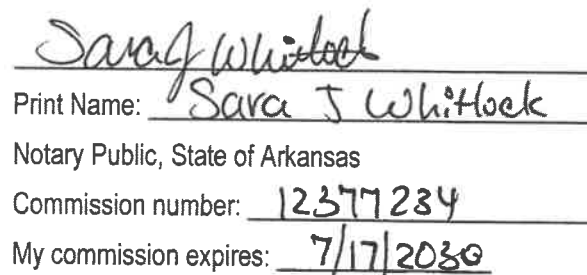 Sara J Whitlock
Print Name: Sara J Whitlock
Notary Public, State of Arkansas
Commission number: 12377234
My commission expires: 7/17/2030